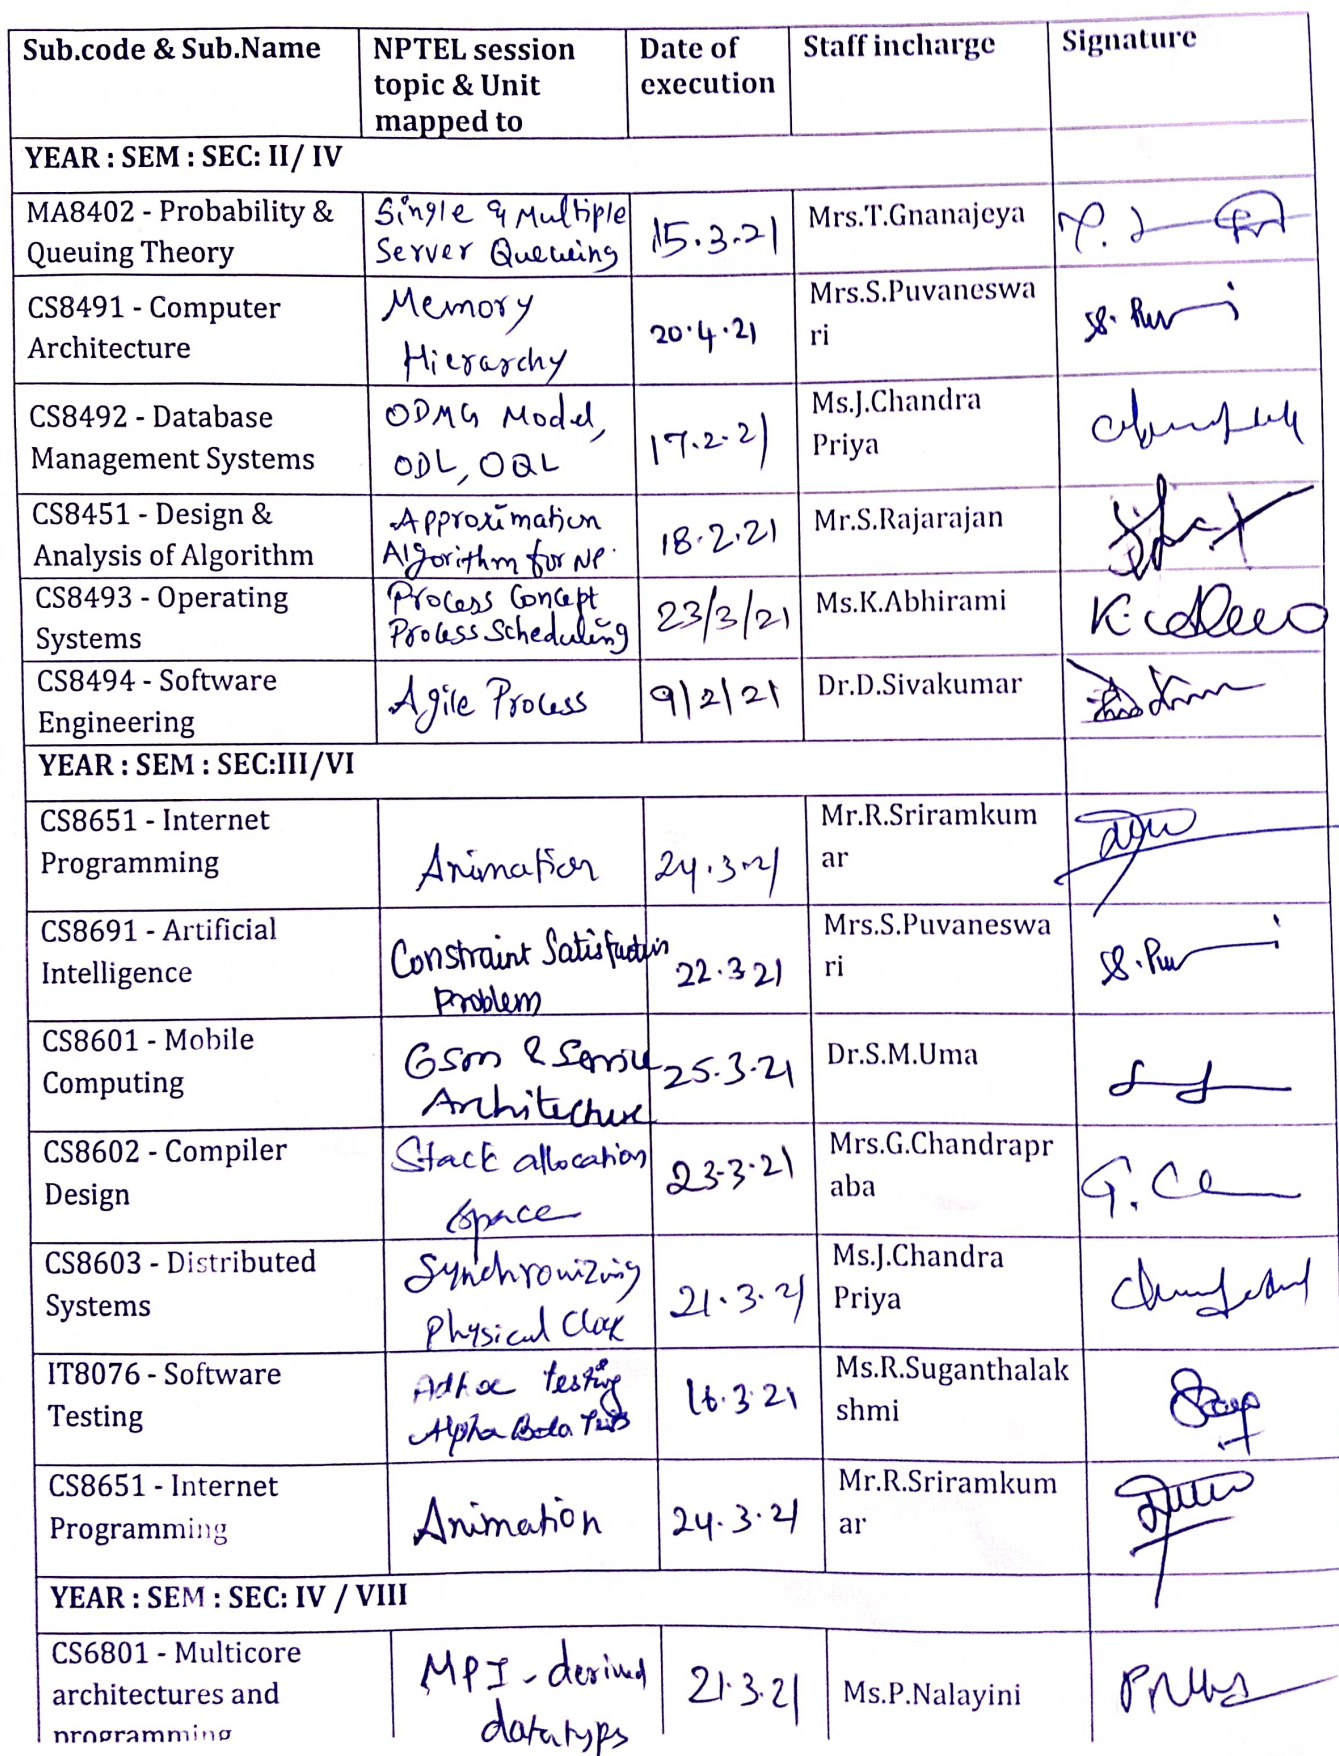 Sub.code & Sub.Name
NPTEL session
topic & Unit
mapped to
Date of
execution
Staff incharge
Signature
YEAR : SEM : SEC: II/ IV
MA8402 - Probability &
Queuing Theory
Single & Multiple
Server Queueing
15.3.21
Mrs.T.Gnanajeya
CS8491 - Computer
Architecture
Memory
Hierarchy
20.4.21
Mrs.S.Puvaneswa
ri
CS8492 - Database
Management Systems
ODMG Model,
ODL, OQL
17.2.21
Ms.J.Chandra
Priya
CS8451 - Design &
Analysis of Algorithm
Approximation
Algorithm for NP.
18.2.21
Mr.S.Rajarajan
CS8493 - Operating
Systems
Process Concept
Process Scheduling
23/3/21
Ms.K.Abhirami
CS8494 - Software
Engineering
Agile Process
9/2/21
Dr.D.Sivakumar
YEAR : SEM : SEC:III/VI
CS8651 - Internet
Programming
Animation
24.3.21
Mr.R.Sriramkum
ar
CS8691 - Artificial
Intelligence
Constraint Satisfaction
Problem
22.3.21
Mrs.S.Puvaneswa
ri
CS8601 - Mobile
Computing
GSM & Service
Architecture
25.3.21
Dr.S.M.Uma
CS8602 - Compiler
Design
Stack allocation
space
23.3.21
Mrs.G.Chandrapr
aba
CS8603 - Distributed
Systems
Synchronizing
Physical Clock
21.3.21
Ms.J.Chandra
Priya
IT8076 - Software
Testing
Adhoc testing
Alpha Beta Tests
16.3.21
Ms.R.Suganthalak
shmi
CS8651 - Internet
Programming
Animation
24.3.21
Mr.R.Sriramkum
ar
YEAR : SEM : SEC: IV / VIII
CS6801 - Multicore
architectures and
programming
MPI - derived
datatyps
21.3.21
Ms.P.Nalayini